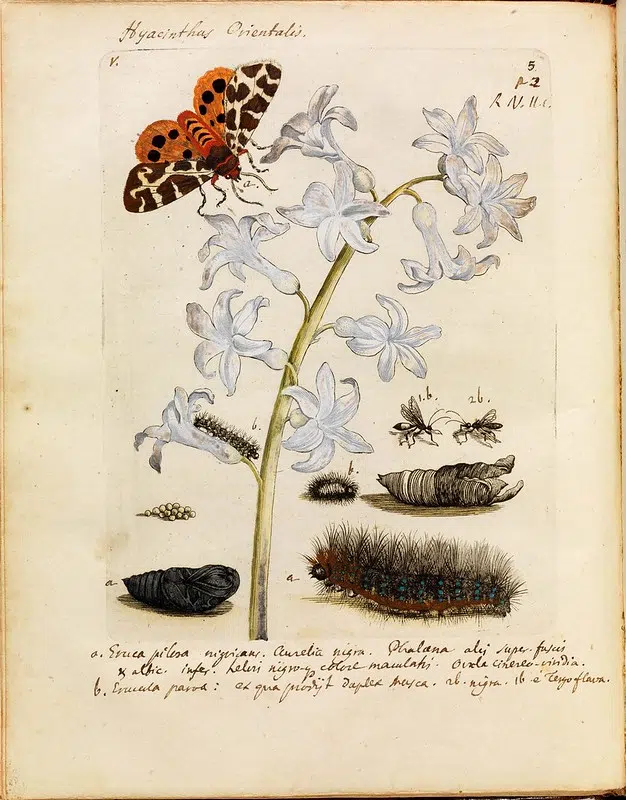 Hyacinthus Orientalis.
V.
5
p 2
R. N. 11. c.
a.
b.
1.b.
2b.
b.
a
a
a. Eruca pilosa nigricans. Aurelia nigra. Phalæna alis super. fuscis
& albic. infer. nigro colore maculatis. Ovula cinereo-viridia.
b. Erucula parva: ex qua prodijt duplex Musca. 2b. nigra. 1b e Tergo flava.